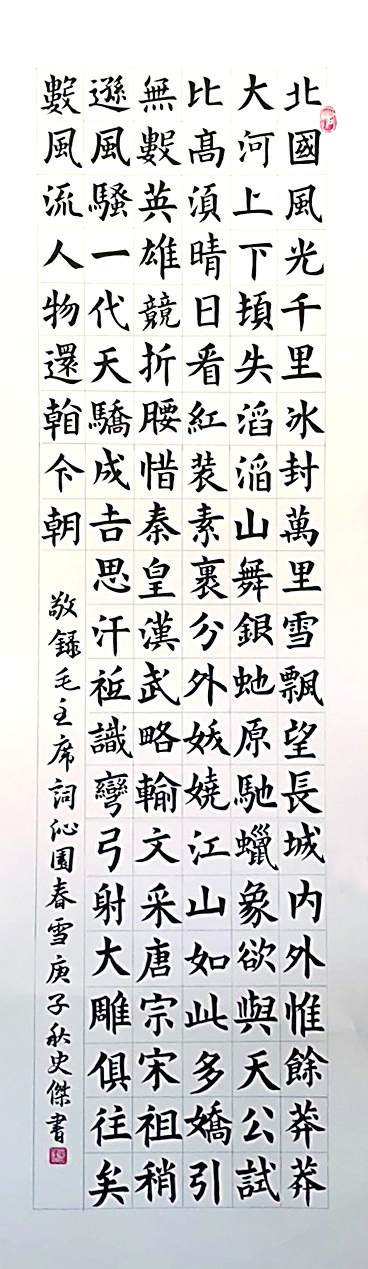 北國風光千里冰封萬里雪飄望長城内外惟餘莽莽
大河上下頓失滔滔山舞銀虵原馳蠟象欲與天公試
比高湏晴日看紅装素裹分外妖嬈江山如此多嬌引
無數英雄競折腰惜秦皇漢武略輸文采唐宗宋祖稍
遜風騷一代天驕成吉思汗衹識彎弓射大雕俱往矣
數風流人物還看今朝
敬録毛主席詞沁園春雪庚子秋史傑書